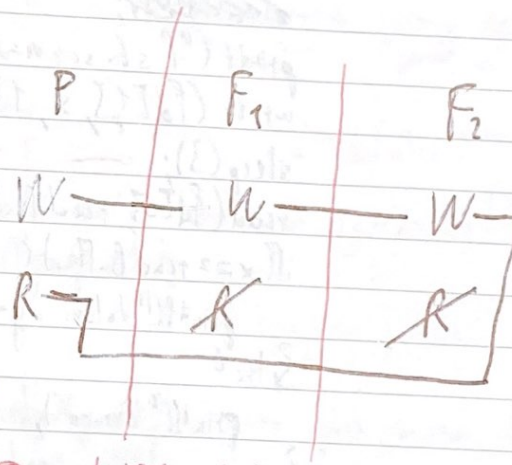 P F₁ F₂
W W W
R R R